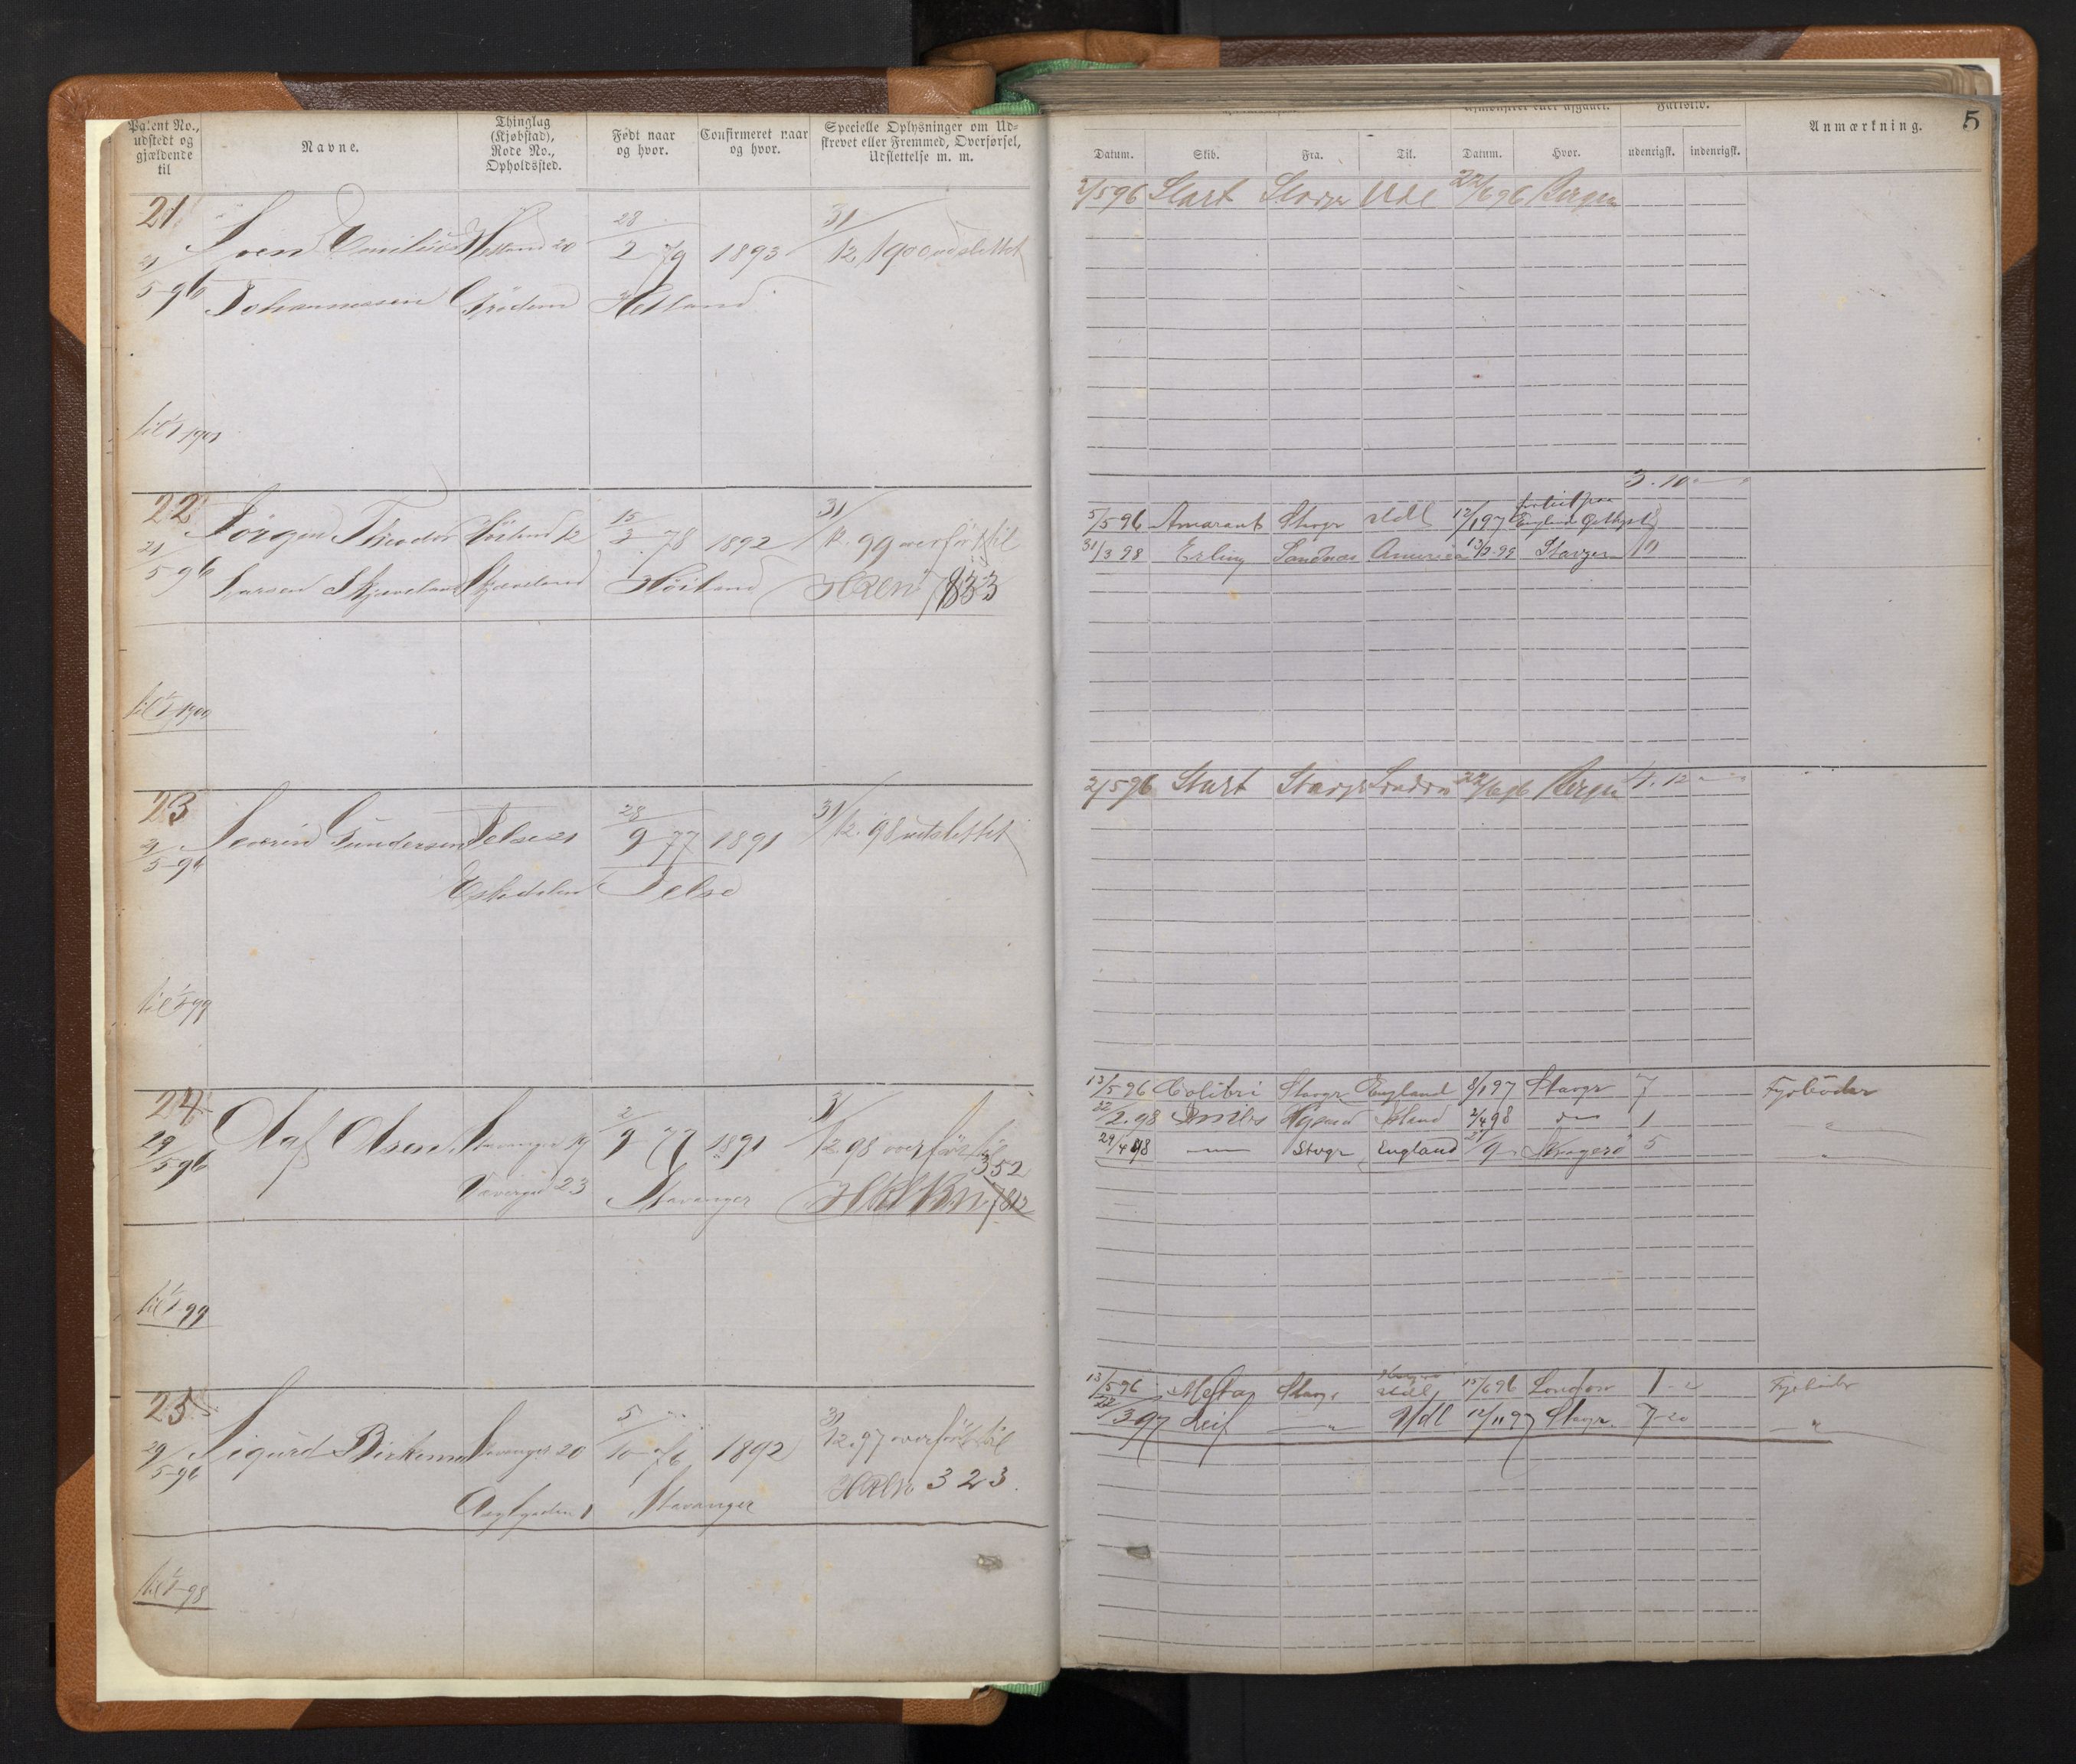 Patent No., udstedt og gjældende til
Navne.
Thinglag (Kjøbstad), Rode No., Opholdssted.
Født naar og hvor.
Confirmeret naar og hvor.
Specielle Oplysninger om Udskrevet eller Fremmed, Overførsel, Udslettelse m. m.
21 Sven Emilius Hetland 20 28/2 79 1893 31/12 1900 udslettet
21/5 96 Johannessen Grødem Hetland
til 1/1 1901
22 Jörgen Theodor Höiland 12 15/3 78 1892 31/12 99 overført til
21/5 96 Larsen Skjæveland Skjæveland Höiland
til 1/1 1900
23 Severin Gundersen Jelse 21 28/9 77 1891 31/12 98 udslettet
21/5 96 Jelse
til 1/1 99
24 Olaf Olsen Stavanger 19 2/9 77 1891 31/12 98 overført til
29/5 96 23 Stavanger 352
til 1/1 99
25 Sigurd Stavanger 20 5/10 76 1892 31/12 97 overført til
29/5 96 1 Stavanger 323
til 1/1 98
Anmærkning. 5
Datum. Skib. Fra. Til. Datum. Hvor. udenrigsk. indenrigsk.
2/5 96 Start Stavgr Udl 22/6 96 Bergen
3.10
5/5 96 Amarant Stavgr Udl 12/1 97 England 8
31/3 98 Erling Sandnæs America Stavger 10
2/5 96 Start Stavgr London 22/6 96 Bergen 1.12
13/5 96 Colibri Stavgr England 8/1 97 Stavgr 7 Fyrböder
22/2.98 Island 2/4 98 do 1 "
29/4 98 — Stvgr England Kragerö 5 "
13/5 96 Stavgr Udl 15/6 96 London 1
22/3 97 Leif — " Udl 12/11 97 Stavgr. 7-20 — "